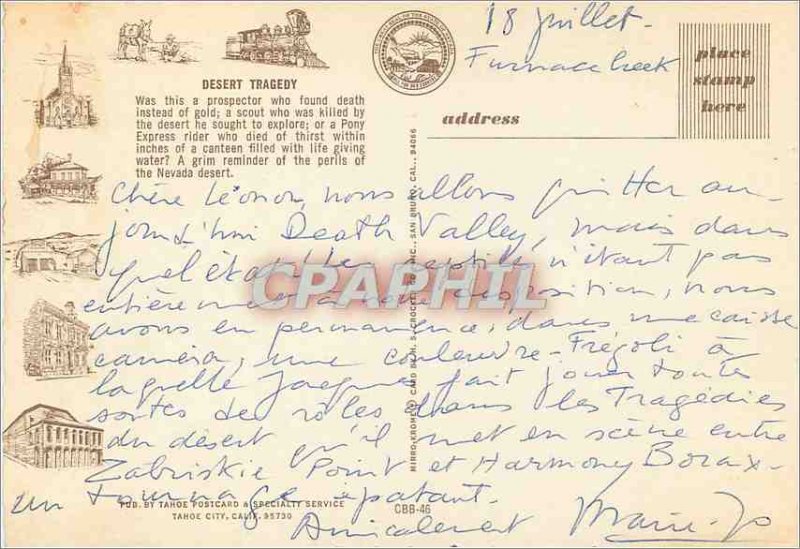 18 juillet -
Furnace Creek
place
stamp
here
address
DESERT TRAGEDY
Was this a prospector who found death
instead of gold; a scout who was killed by
the desert he sought to explore; or a Pony
Express rider who died of thirst within
inches of a canteen filled with life giving
water? A grim reminder of the perils of
the Nevada desert.
Chère Léonor, nous allons quitter au-
jourd'hui Death Valley, mais dans
quel état! Les reptiles n'étant pas
entièrement à notre disposition, nous
avons en permanence, dans une caisse
caméra, une couleuvre-Frégoli à
laquelle Jacques fait jouer toutes
sortes de rôles dans les Tragédies
du désert qu'il met en scène entre
Zabriskie Point et Harmony Borax -
un tournage épatant.
Amicalement Marie-Jo
CPAPHIL
MIRRO-KROME® CARD BY H. S. CROCKER CO., INC., SAN BRUNO, CAL., 94066
PUB. BY TAHOE POSTCARD & SPECIALTY SERVICE
TAHOE CITY, CALIF. 95730
CBB-46